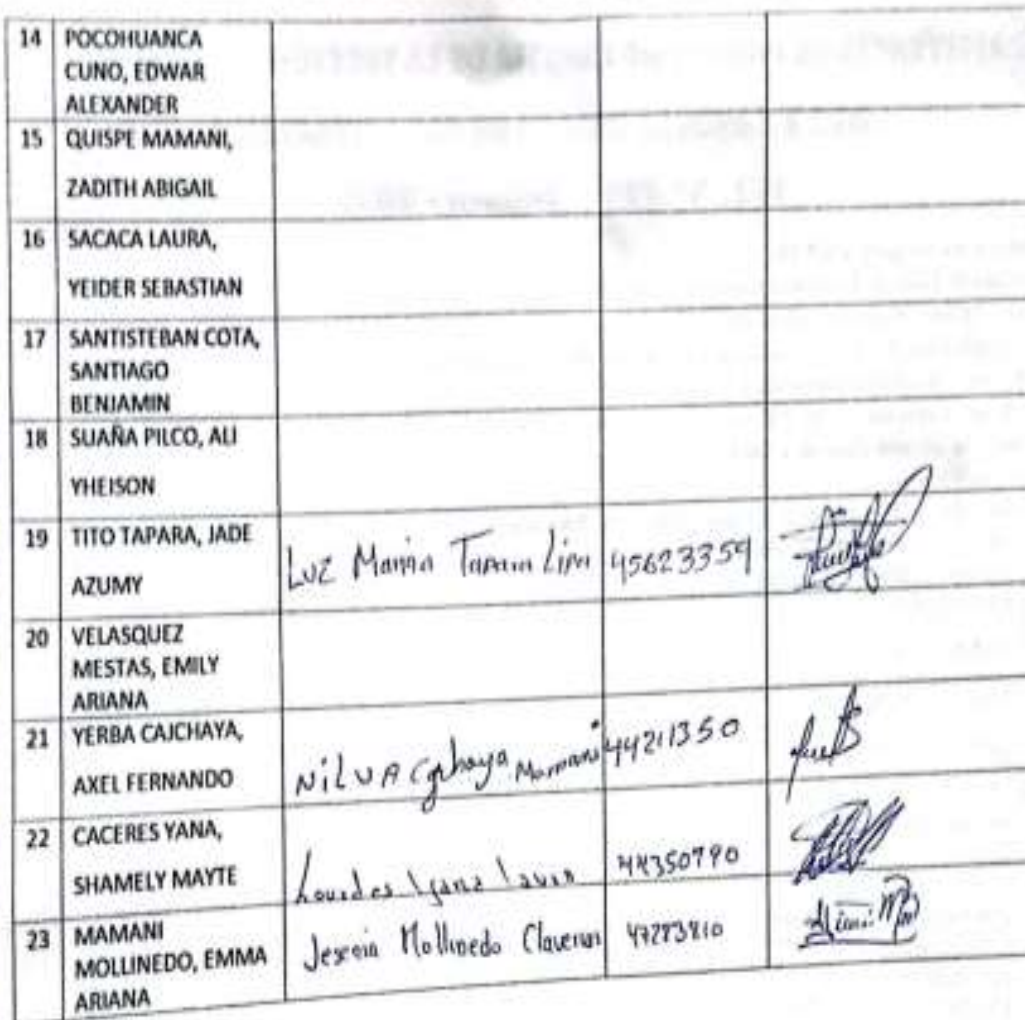 14 POCOHUANCA
CUNO, EDWAR
ALEXANDER
15 QUISPE MAMANI,
ZADITH ABIGAIL
16 SACACA LAURA,
YEIDER SEBASTIAN
17 SANTISTEBAN COTA,
SANTIAGO
BENJAMIN
18 SUAÑA PILCO, ALI
YHEISON
19 TITO TAPARA, JADE
AZUMY
LUZ Marina Tapara Lipa 45623359
20 VELASQUEZ
MESTAS, EMILY
ARIANA
21 YERBA CAJCHAYA,
AXEL FERNANDO
NILVA Cajchaya Mamani 44211350
22 CACERES YANA,
SHAMELY MAYTE
Lourdes Yana 44350790
23 MAMANI
MOLLINEDO, EMMA
ARIANA
Mollinedo